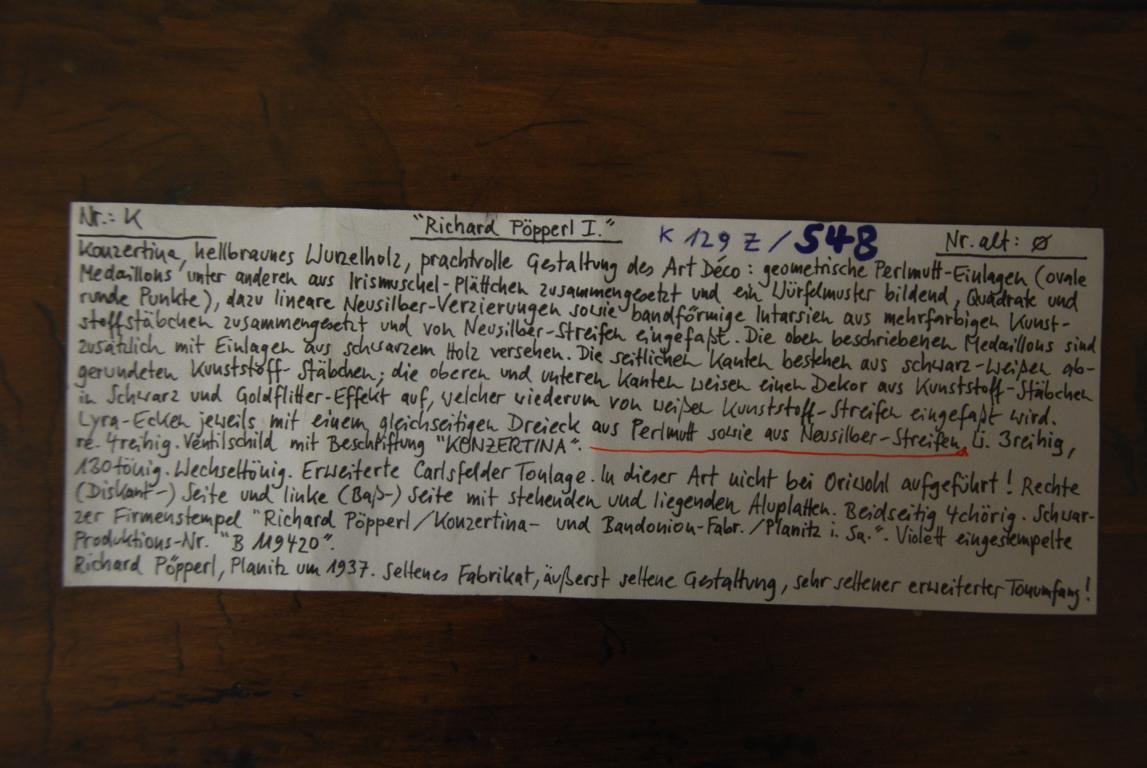 Nr.: K
"Richard Pöpperl I."
K 129 Z / 548
Nr. alt: Ø
Konzertina, hellbraunes Wurzelholz, prachtvolle Gestaltung des Art Déco: geometrische Perlmutt-Einlagen (ovale
Medaillons unter anderen aus Irismuschel-Plättchen zusammengesetzt und ein Würfelmuster bildend, Quadrate und
runde Punkte), dazu lineare Neusilber-Verzierungen sowie bandförmige Intarsien aus mehrfarbigen Kunst-
stoffstäbchen zusammengesetzt und von Neusilber-Streifen eingefaßt. Die oben beschriebenen Medaillons sind
zusätzlich mit Einlagen aus schwarzem Holz versehen. Die seitlichen Kanten bestehen aus schwarz-weißen ab-
gerundeten Kunststoff-Stäbchen; die oberen und unteren Kanten weisen einen Dekor aus Kunststoff-Stäbchen
in Schwarz und Goldflitter-Effekt auf, welcher wiederum von weißen Kunststoff-Streifen eingefaßt wird.
Lyra-Ecken jeweils mit einem gleichseitigen Dreieck aus Perlmutt sowie aus Neusilber-Streifen. Li. 3reihig,
re. 4reihig. Ventilschild mit Beschriftung "KONZERTINA".
130tönig. Wechseltönig. Erweiterte Carlsfelder Tonlage. In dieser Art nicht bei Oriwohl aufgeführt! Rechte
(Diskant-) Seite und linke (Baß-) Seite mit stehenden und liegenden Aluplatten. Beidseitig 4chörig. Schwar-
zer Firmenstempel "Richard Pöpperl/Konzertina- und Bandonion-Fabr./Planitz i. Sa.". Violett eingestempelte
Produktions-Nr. "B 119420".
Richard Pöpperl, Planitz um 1937. Seltenes Fabrikat, äußerst seltene Gestaltung, sehr seltener erweiterter Tonumfang!